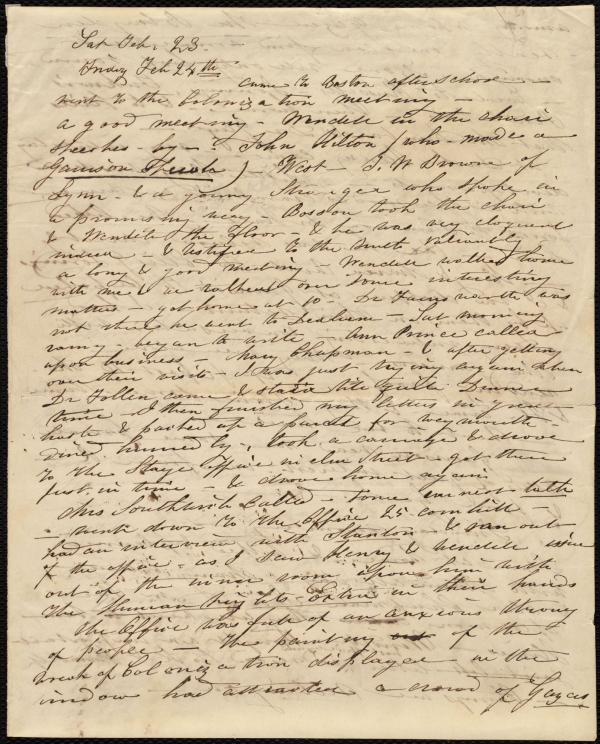 Sat Feb. 23.
Friday Feb 24th came to Boston after school —
went to the Colonization meeting —
a good meeting - Wendell in the chair
speeches - by - John Hilton (who - made a
Garrison Speech) - West - J. W Browne of
Lynn - & a young Stranger who spoke in
a promising way - Bosson took the chair
& Wendell the floor - & he was very eloquent
indeed - & testified to the truth valiantly
a long & good meeting - Wendell walked home
with me & we talked over some interesting
matters - got home at 10 - Dr Farnsworth was
not there he went to Dedham - Sat morning
rainy - began to write - Ann Prince called
upon business - Mary Chapman - & after getting
over their visit - I was just trying again when
Dr Follen came & staid till quite Dinner
time - I then finished my letters in great
haste & packed up a parcel for Weymouth -
Dined hurriedly, took a carriage & drove
to the Stage Office in Elm Street - got there
just in time - & drove home again
Mrs Southwick called - some earnest talk
- went down to the Office 25 Cornhill -
had an interview with Stanton & ran out
of the office - as I saw Henry & Wendell
out of the inner room upon him with
The Human rights Extra in their hands
The Office was full of an anxious throng
of people - The painting of the
wreck of Colonization displayed in the
window had attracted a crowd of Gazers